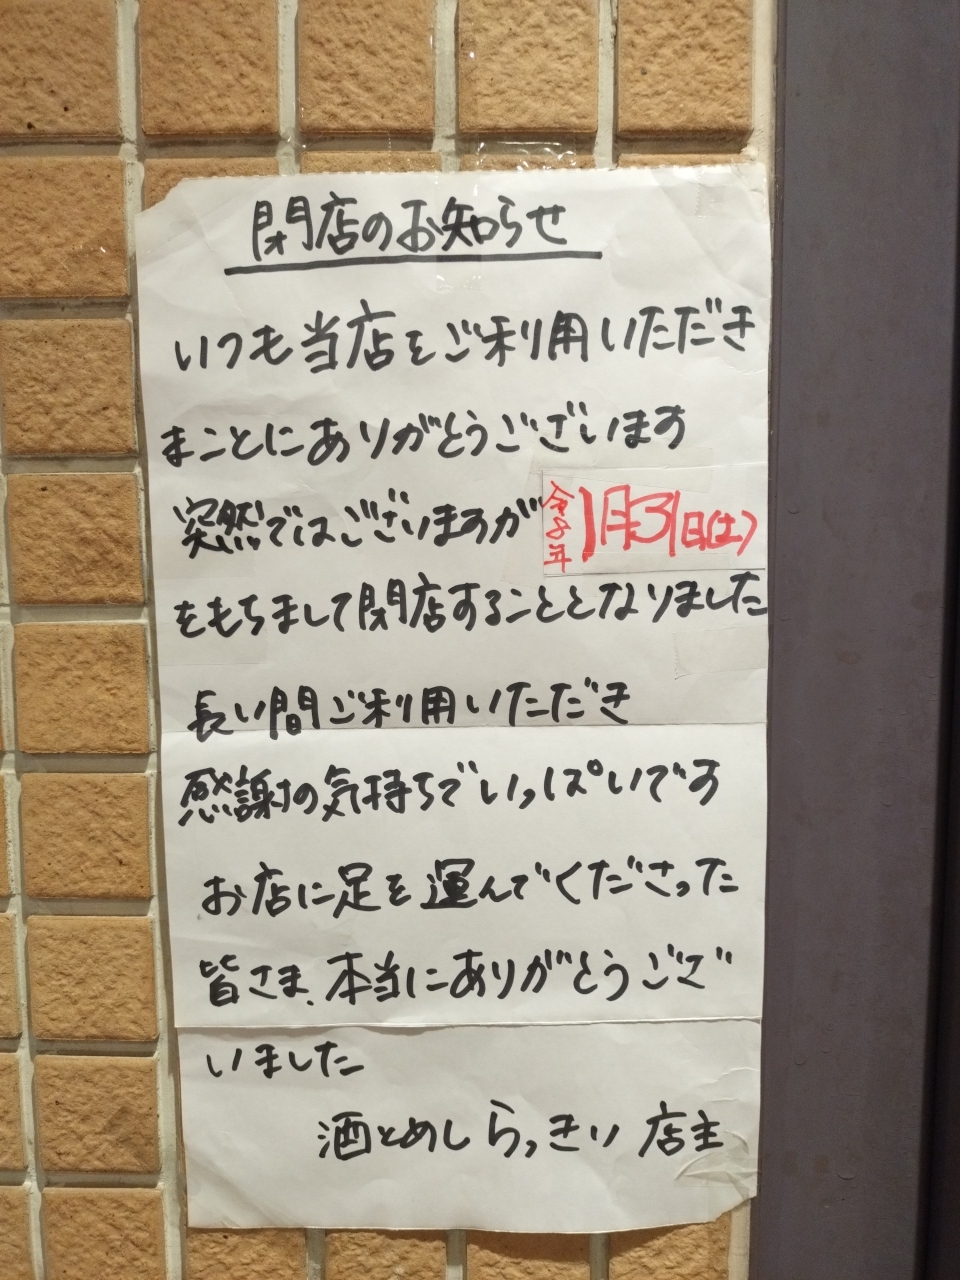 閉店のお知らせ
いつも当店をご利用いただき
まことにありがとうございます
突然ではございますが令和8年1月31日(土)
をもちまして閉店することとなりました
長い間ご利用いただき
感謝の気持ちでいっぱいです
お店に足を運んでくださった
皆さま、本当にありがとうござ
いました
酒とめしらっきり 店主